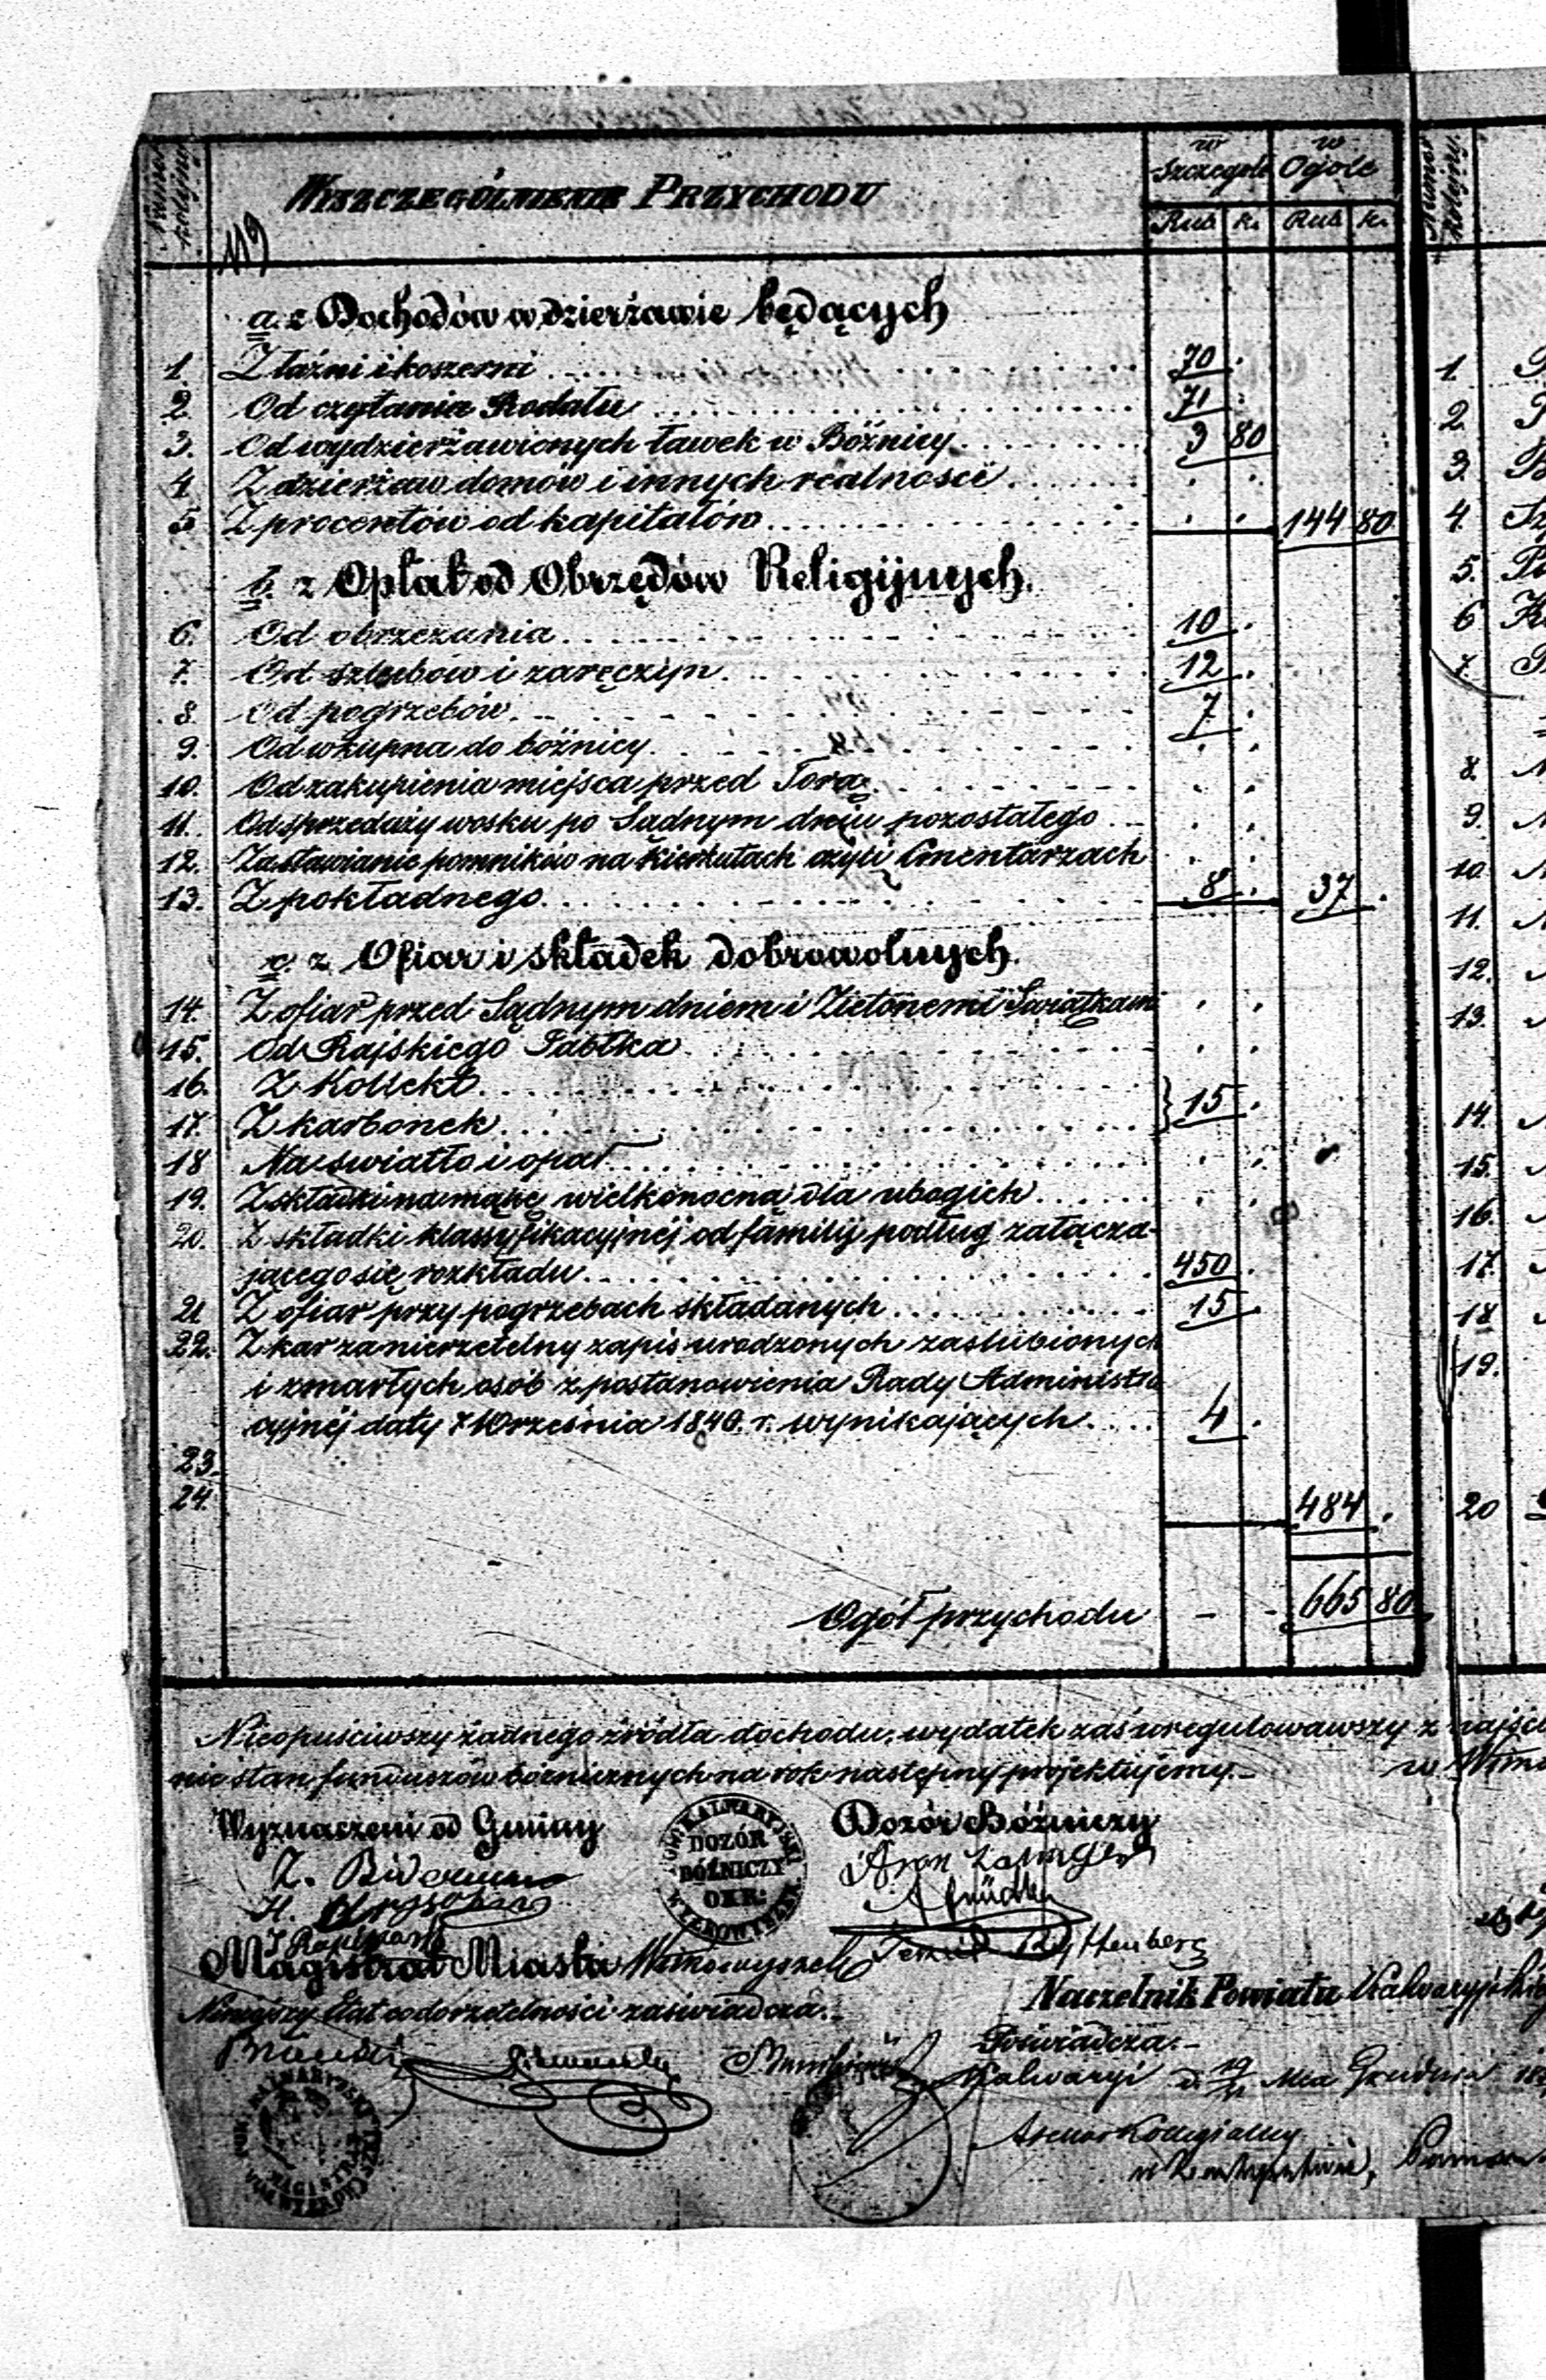 Numer kolejny WYSZCZEGÓLNIENIE PRZYCHODU w Szczególe w Ogóle
Rub. k. Rub. k.
119
a. z Dochodów w dzierżawie będących
1. Z łaźni i koszerni 70 .
2. Od czytania Rodału 71 .
3. Od wydzierżawionych ławek w Bóżnicy 3 80
4 Z dzierżaw domów i innych realności . .
5 Z procentów od kapitałów . . 144 80
b. z Opłat od Obrzędów Religijnych.
6. Od obrzezania 10 .
7. Od szlubów i zaręczyn. 12 .
8. Od pogrzebów. 7 .
9. Od wkupna do bóżnicy. . .
10. Od zakupienia miejsca przed Torą. . .
11. Od sprzedaży wosku po Sądnym dniu pozostałego . .
12. Za stawianie pomników na kierkutach czyli Cmentarzach . .
13. Z pokładnego 8 . 37 .
c. z Ofiar i składek dobrowolnych.
14. Z ofiar przed Sądnym dniem i Zielonemi Świątkami . .
15. Od Rajskiego Jabłka . .
16. Z Kollekt
17. Z karbonek } 15 .
18 Na światło i opał . .
19. Z składki na mąkę wielkonocną dla ubogich . .
20. Z składki klassyfikacyjnéj od familij podług załącza-
jącego się rozkładu 450 .
21 Z ofiar przy pogrzebach składanych 15 .
22. Z kar za nierzetelny zapis urodzonych zaslubionych
i zmarłych osób z postanowienia Rady Administra
cyjnéj daty 7 Września 1840. r. wynikających 4 .
23.
24. 484 .
Ogół przychodu - - 665 80
Nieopuściwszy żadnego źródła dochodu, wydatek zaś uregulowawszy z najści
nie stan funduszów bóżniczych na rok następny projektujemy.- w
Wyznaczeni od Gminy Dozór Bóżniczy
DOZÓR
BÓŻNICZY
OKR:
H.
Magistrat Miasta
Niniejszy Etat co do rzetelności zaświadcza.-
Naczelnik Powiatu Kalwaryjskie
Poświadcza.-
Kalwaryi d. Mca Grudnia
Assesor Kollegialny
Numer kolejny
1.
2.
3.
4.
5.
6
7.
8.
9.
10.
11.
12.
13.
14.
15.
16.
17.
18
19.
20